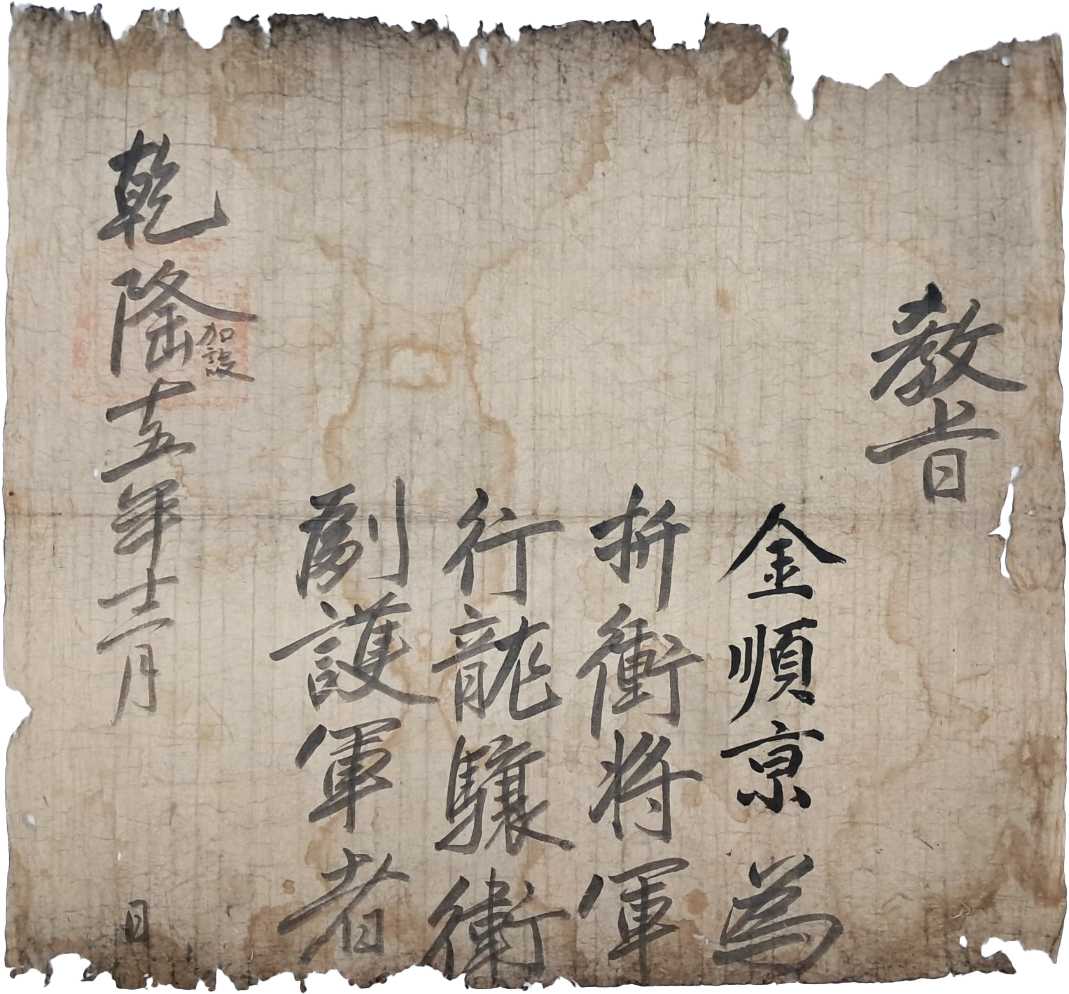 教旨
金順京為
折衝将軍
行龍驤衛
副護軍者
乾隆十五年十二月
日
加設